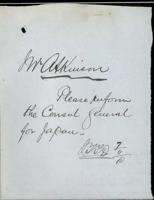 Mr Atkinson
Please inform
the Consul General
for Japan.